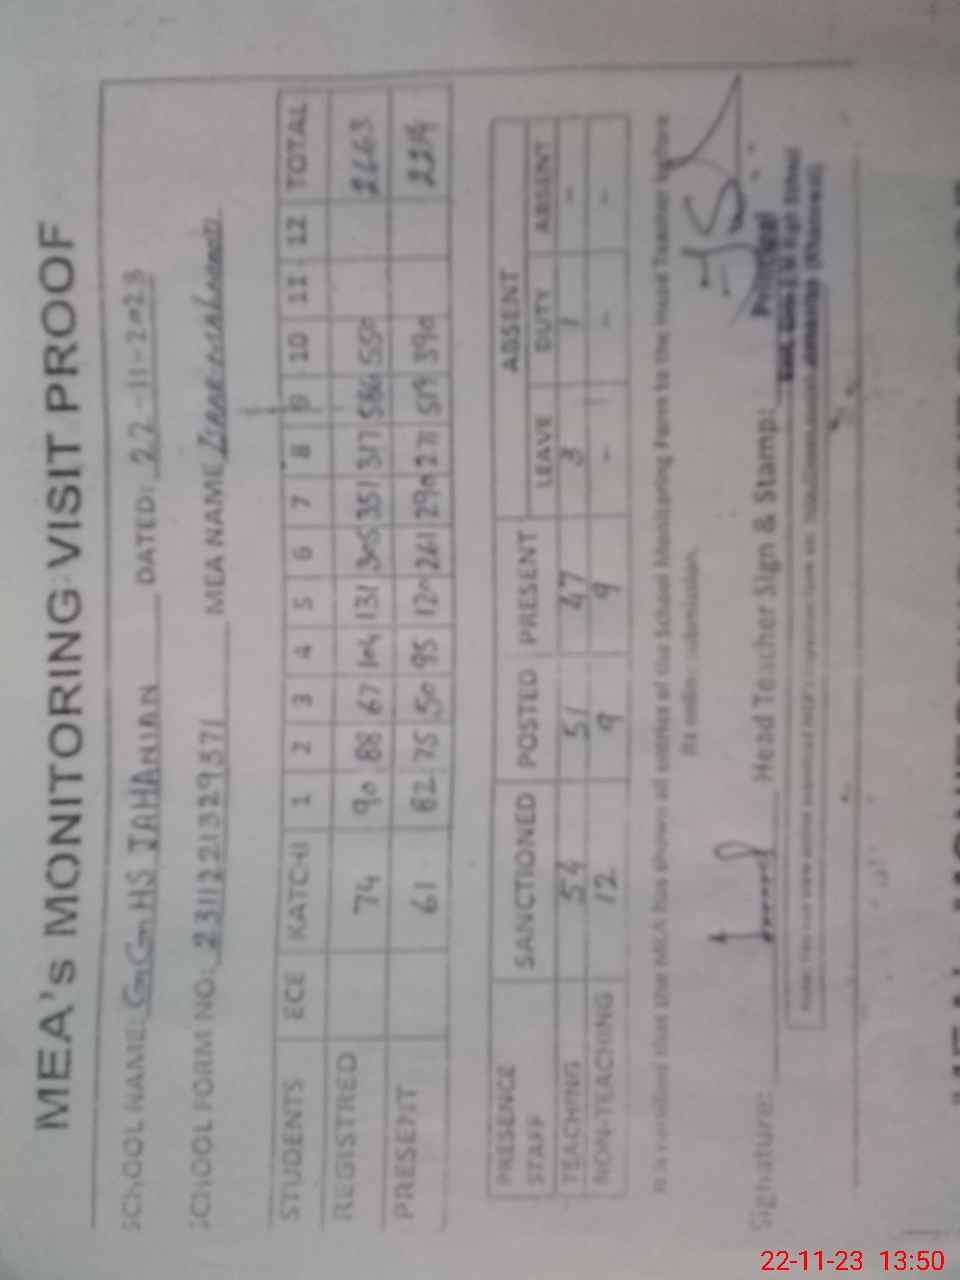 MEA's MONITORING VISIT PROOF
SCHOOL NAME: GGHS JAHANIAN DATED: 22-11-2023
SCHOOL FORM NO: 2311221329371 MEA NAME
STUDENTS ECE KATCHI 1 2 3 4 5 6 7 8 9 10 11 12 TOTAL
REGISTRED 74 90 88 67 104 131 305 351 317 586 550 2663
PRESENT 61 82 75 50 95 120 261 290 271 519 390 2214
PRESENCE STAFF SANCTIONED POSTED PRESENT ABSENT
LEAVE DUTY ABSENT
TEACHING 54 51 47 3 1 -
NON-TEACHING 12 9 9 - - -
It is verified that the MEA has shown all entries of the School Monitoring Form to the Head Teacher before
its online submission.
Signature: Head Teacher Sign & Stamp:
Principal
22-11-23 13:50